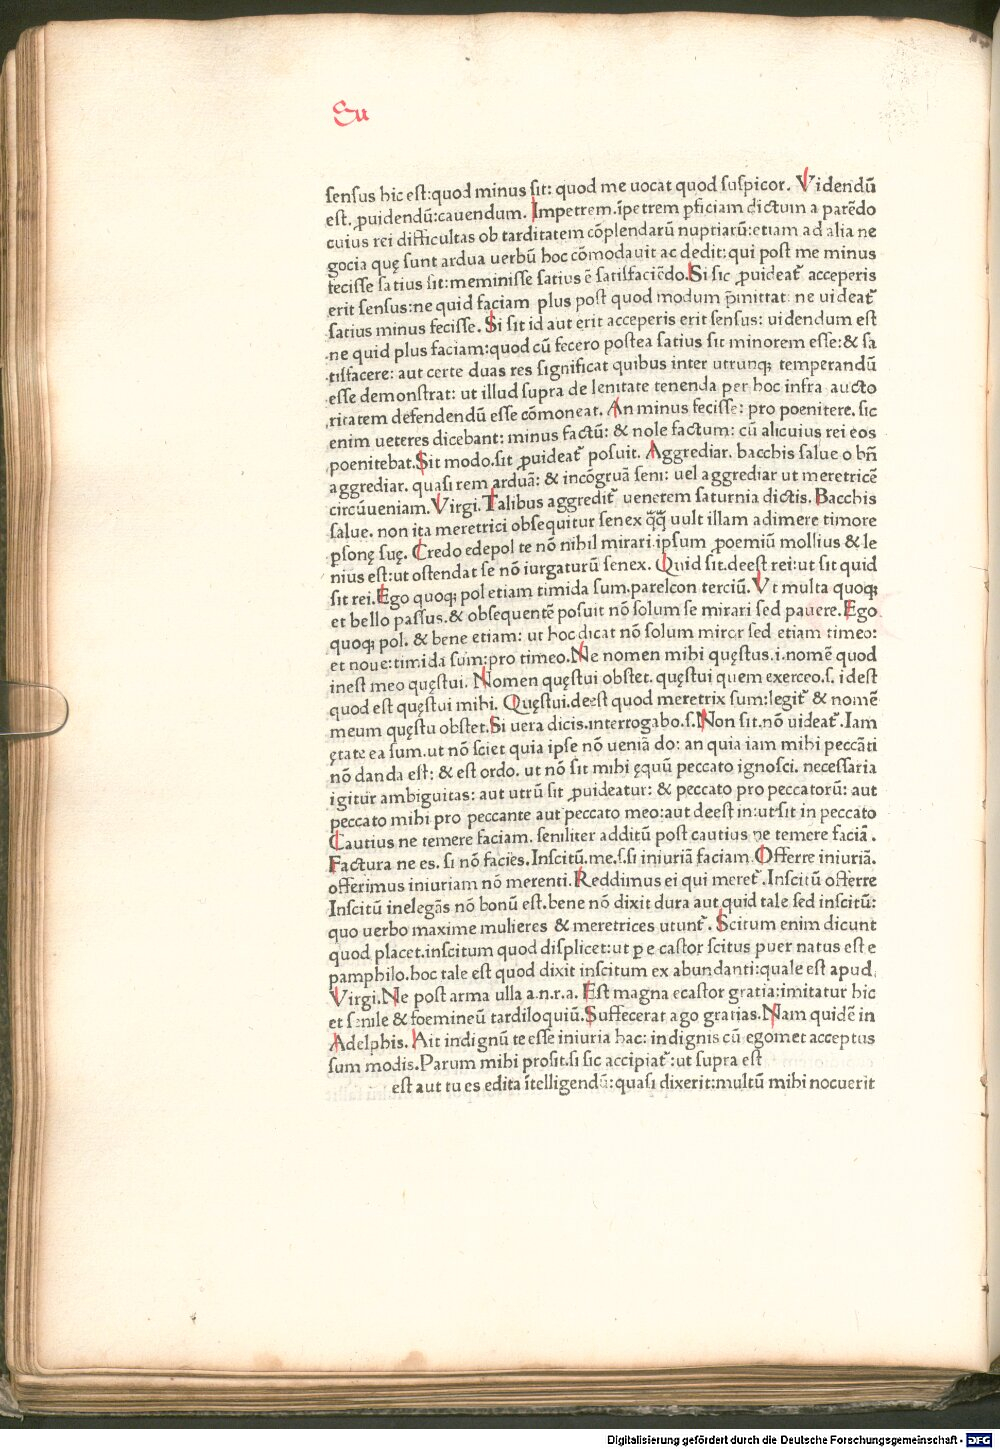 Su
sensus hic est:quod minus sit: quod me uocat quod suspicor. Videndū
est. ꝓuidendū:cauendum. Impetrem.īpetrem ꝑficiam dictum a parēdo
cuius rei difficultas ob tarditatem cōplendarū nuptiarū:etiam ad alia ne
gocia quę sunt ardua uerbū hoc cōmodauit ac dedit:qui post me minus
fecisse satius sit:meminisse satius ē satisfaciēdo.Si sic ꝓuideat᷑ acceperis
erit sensus:ne quid faciam plus post quod modum p̄mittat: ne uideat᷑
satius minus fecisse. Si sit id aut erit acceperis erit sensus: uidendum est
ne quid plus faciam:quod cū fecero postea satius sit minorem esse:& sa
tisfacere: aut certe duas res significat quibus inter utrunqꝫ temperandū
esse demonstrat: ut illud supra de lenitate tenenda per hoc infra aucto
ritatem defendendū esse cōmoneat. An minus fecisse: pro poenitere. sic
enim ueteres dicebant: minus factū: & nole factum: cū alicuius rei eos
poenitebat.Sit modo.sit ꝓuideat᷑ posuit. Aggrediar. bacchis salue o bn̄
aggrediar. quasi rem arduā: & incōgruā seni: uel aggrediar ut meretricē
circūueniam.Virgi.Talibus aggredit᷑ uenerem saturnia dictis. Bacchis
salue. non ita meretrici obsequitur senex q̄q̄ uult illam adimere timore
ꝑsonę suę. Credo edepol te nō nihil mirari.ipsum ꝓoemiū mollius & le
nius est:ut ostendat se nō iurgaturū senex. Quid sit.deest rei:ut sit quid
sit rei.Ego quoqꝫ pol etiam timida sum.parelcon terciū.Vt multa quoqꝫ
et bello passus.& obsequentē posuit nō solum se mirari sed pauere.Ego
quoqꝫ pol. & bene etiam: ut hoc dicat nō solum miror sed etiam timeo:
et noue:timida sum:pro timeo.Ne nomen mihi quęstus.i.nomē quod
inest meo quęstui. Nomen quęstui obstet. quęstui quem exerceo.s. idest
quod est quęstui mihi. Quęstui.deest quod meretrix sum:legit᷑ & nomē
meum quęstu obstet.Si uera dicis.interrogabo.s.Non sit.nō uideat᷑.Iam
ętate ea sum.ut nō sciet quia ipse nō ueniā do: an quia iam mihi peccāti
nō danda est: & est ordo. ut nō sit mihi ęquū peccato ignosci. necessaria
igitur ambiguitas: aut utrū sit ꝓuideatur: & peccato pro peccatorū: aut
peccato mihi pro peccante aut peccato meo:aut deest in:ut sit in peccato
Cautius ne temere faciam. seniliter additū post cautius ne temere faciā.
Factura ne es. si nō facies.Inscitū.me.s.si iniuriā faciam.Offerre iniuriā.
offerimus iniuriam nō merenti.Reddimus ei qui meret᷑.Inscitū offerre
Inscitū inelegās nō bonū est.bene nō dixit dura aut quid tale sed inscitū:
quo uerbo maxime mulieres & meretrices utunt᷑. Scitum enim dicunt
quod placet.inscitum quod displicet:ut ꝑ e castor scitus puer natus est e
pamphilo.hoc tale est quod dixit inscitum ex abundanti:quale est apud
Virgi.Ne post arma ulla a.n.r.a. Est magna ecastor gratia:imitatur hic
et senile & foemineū tardiloquiū.Suffecerat ago gratias.Nam quidē in
Adelphis. Ait indignū te esse iniuria hac: indignis cū egomet acceptus
sum modis.Parum mihi prosit.si sic accipiat᷑:ut supra est
est aut tu es edita ītelligendū:quasi dixerit:multū mihi nocuerit
Digitalisierung gefördert durch die Deutsche Forschungsgemeinschaft - DFG